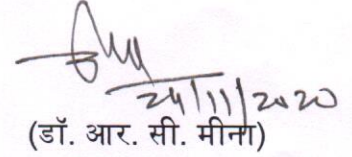 24/11/2020
(डॉ. आर. सी. मीना)